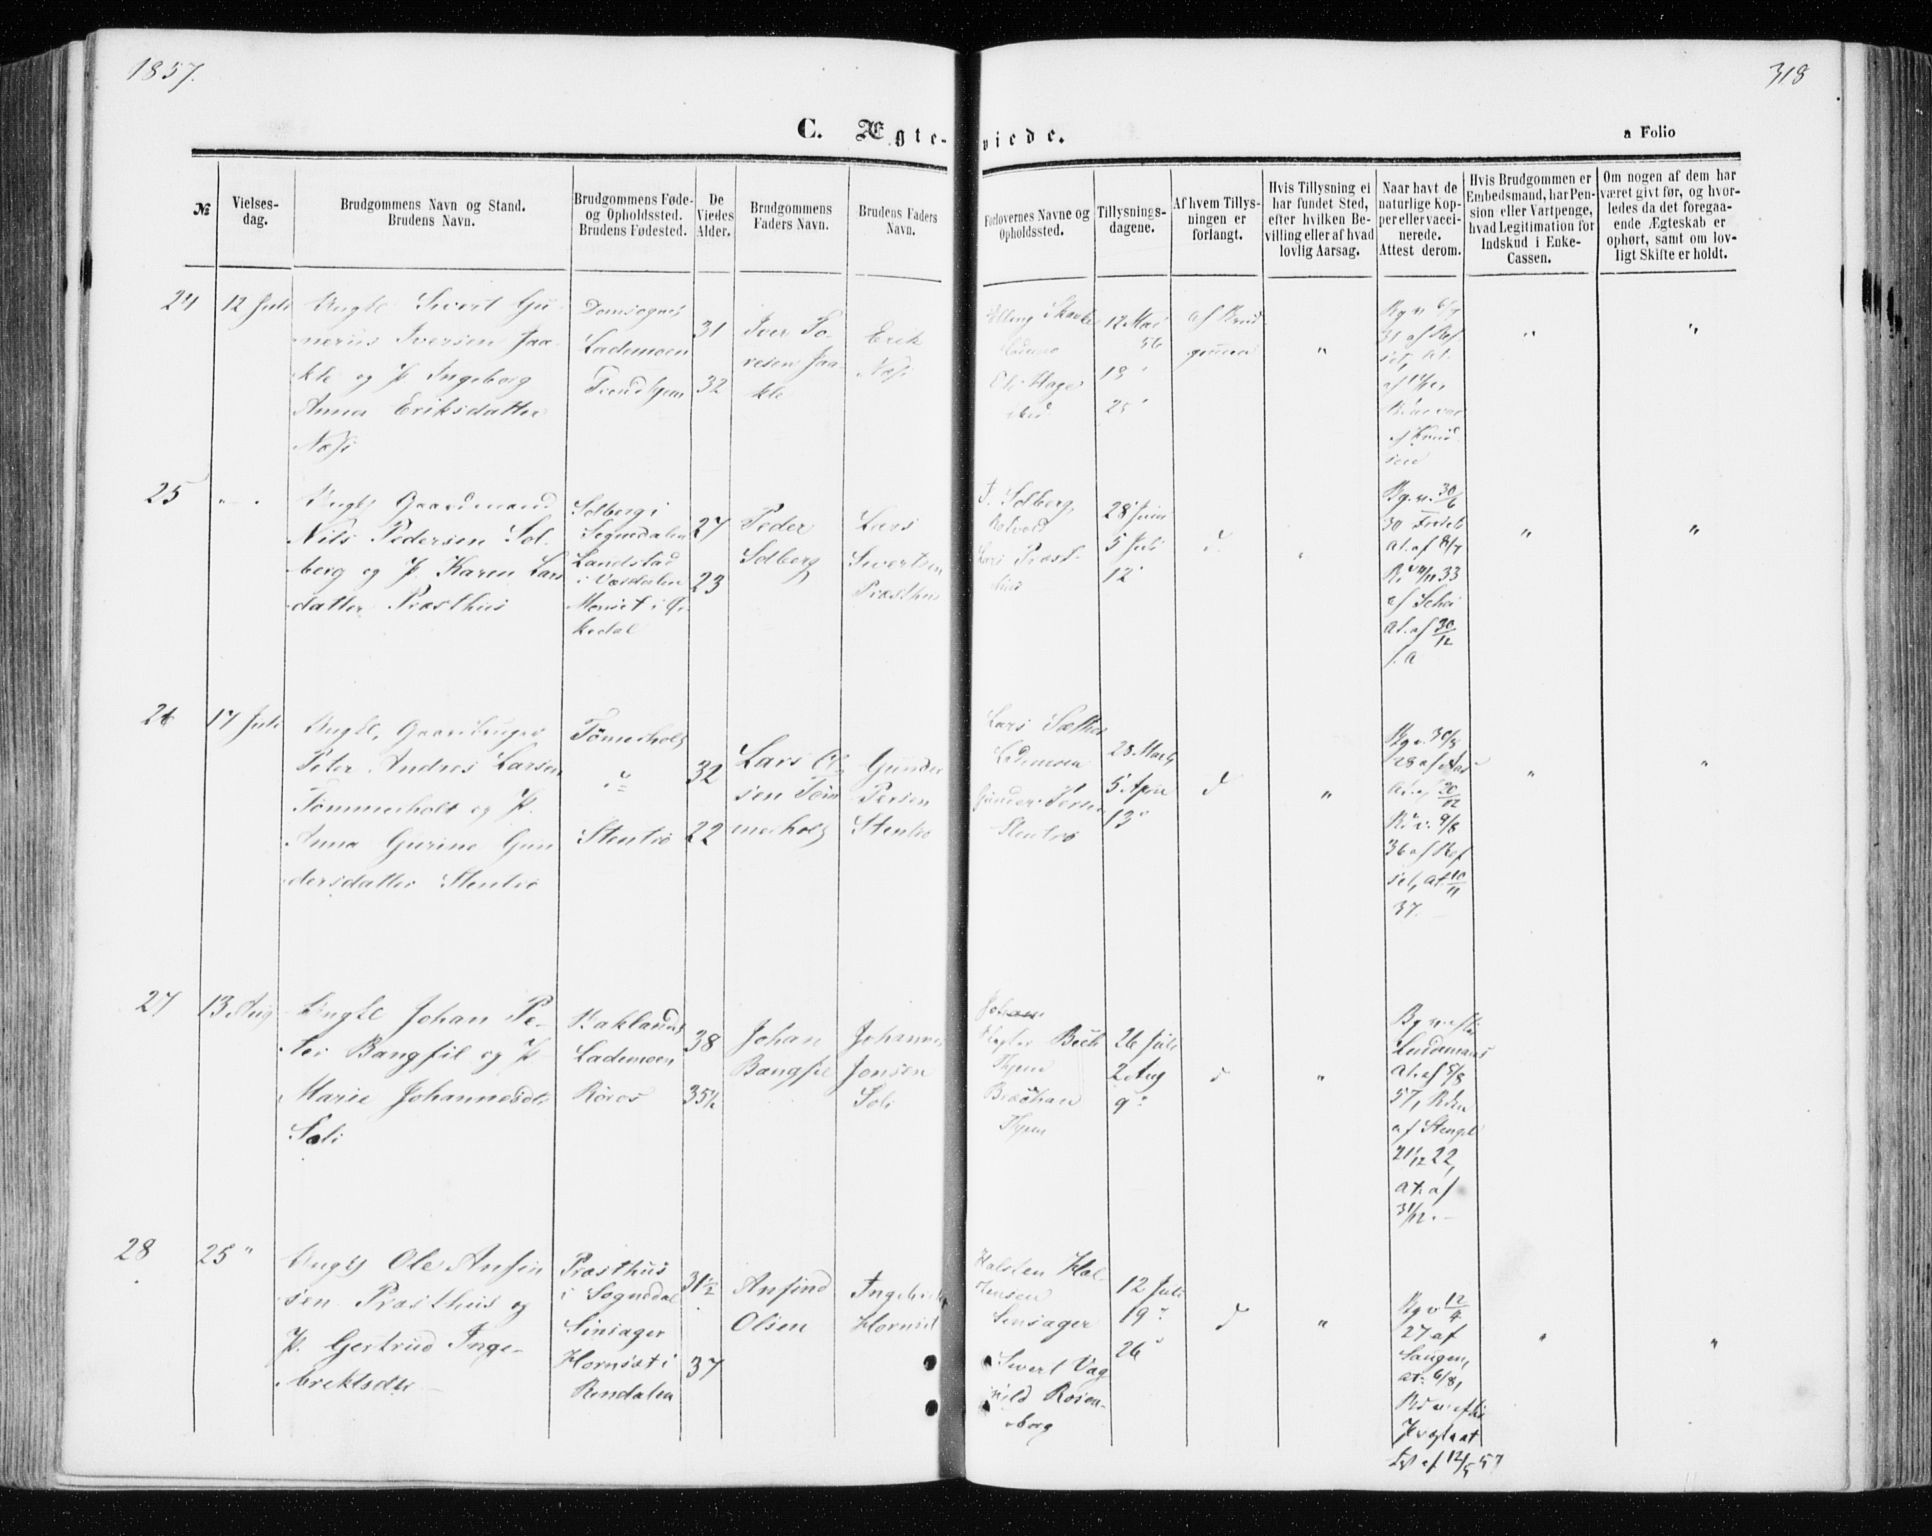 1857.
318
C. Ægte-
viede.
a Folio
№
Vielses-
dag.
Brudgommens Navn og Stand.
Brudens Navn.
Brudgommens Føde-
og Opholdssted.
Brudens Fødested.
De
Viedes
Alder.
Brudgommens
Faders Navn.
Brudens Faders
Navn.
Forlovernes Navne og
Opholdssted.
Tillysnings-
dagene.
Af hvem Tillys-
ningen er
forlangt.
Hvis Tillysning ei
har fundet Sted,
efter hvilken Be-
villing eller af hvad
lovlig Aarsag.
Naar havt de
naturlige Kop-
per eller vacci-
nerede.
Attest derom.
Hvis Brudgommen er
Embedsmand, har Pen-
sion eller Vartpenge,
hvad Legitimation for
Indskud i Enke-
Cassen.
Om nogen af dem har
været givt før, og hvor-
ledes da det foregaa-
ende Ægteskab er
ophørt, samt om lov-
ligt Skifte er holdt.
24
12 Juli
Ungk Sivert Gu-
nerius Iversen Jaa-
kle og P. Ingeborg
Anna Eriksdatter
Næss
Domsognet
Lademoen
Trondhjem
31
32
Iver To-
resen Jaa-
kle
Erik
Næss
17 Mai
56
18
25
af Brud
gommen
"
"
"
25
" - "
Ungk Gaardmand
Nils Pedersen Sol-
berg og P. Karen Lars
datter Præsthus
Solberg i
Sognedalen
Landstad
i Værdalen
27
23
Peder
Solberg
Lars
Sivertsen
Præsthus
Solberg
Lars Præst-
hus
28 Juni
5 Juli
12
d
"
Bg. v. 30/6
30
at. af 8/7
33
af
at. af 30/12
f. a
"
"
26
17 Juli
Ungk. Gaardbruger
Peter Andreas Larsen
Tømmerholt og P.
Anna Gurine Gun
dersdatter Stentrø
Tømmerholt
Stentrø
32
22
Lars Ol-
sen Tøm
merholt
Gunder
Persen
Stentrø
Lars Sæther
Lademoen
Gunder Persen
Stentrø
28 Marts
5 April
13
d
"
Bg v. 30/8
28 af
at. af 20/12
Bd v. 9/8
36 af Ref
set, at. 10/11
37. -
"
"
27
13 Aug
Ungk Johan Pe-
ter Bangfil og P
Marie Johannesdtr
Soli
Baklandet
Lademoen
Røros
38
35½
Johan
Bangfil
Johannes
Jonsen
Soli
Johan
Bech
Thjem
Thjem
26 Juli
2 Aug
9
d
"
Bg v. efter
Lindemans
at. af 8/8
57, Bden
af Stengel
21/12 22,
at. af
31/12. -
28
25 "
Ungk Ole Anfin
sen Præsthus og
P. Gertrud Inge-
brektsdtr
Præsthus
i Sognedal
Sensager
Hornset i
Rendalen
31½
37
Anfind
Olsen
Ingebrikt
Hornset
Halsten Hal-
stensen
Sensager
Sivert Vag
nild Rosen-
borg
12 Juli
19
26
d
"
Bg v 12/4
27 af
at. 6/8,
Bd v. efter
af 12/5 57
"
"